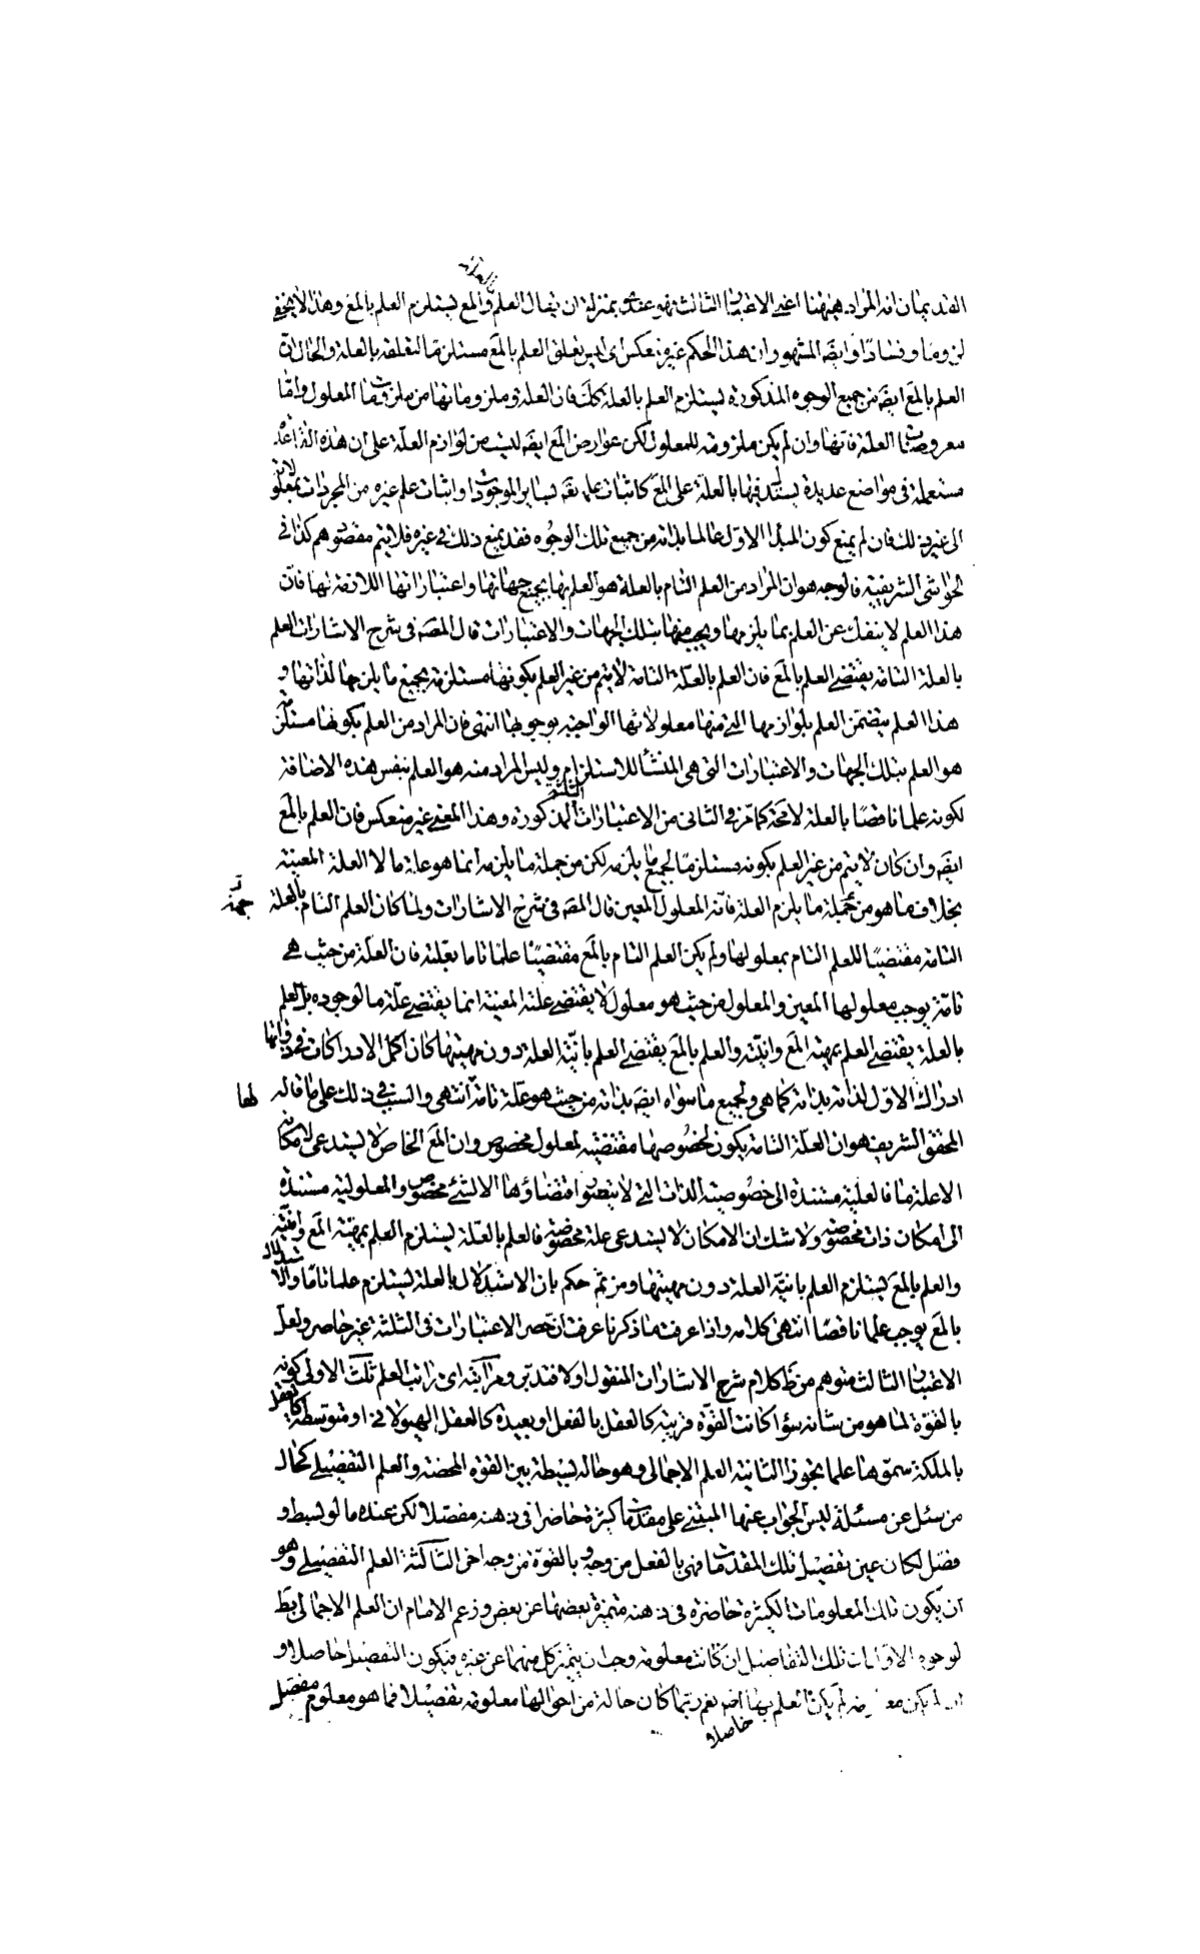 بالعلة
القديمان انه المراد ههنا اعنى الاعتبار الثالث فهو عندى بمنزلة ان يقال العلم والمع يستلزم العلم بالمع وهذا لا يخفى
لزوما وفسادا وايضَه المشهور ان هذا الحكم غير منعكس اى ليس تعلق العلم بالمع مستلزما لتعلقه بالعلة والحال ان
العلم بالمع ايضَه من جميع الوجوه المذكورة يستلزم العلم بالعلة كك فان العلة وملزوماتها من ملزومات المعلول واما
معروضات العلة فانها وان لم يكن ملزومة للمعلول لكن عوارض المع ايضَه ليست من لوازم العلة على ان هذه القاعدة
مستعملة فى مواضع عديدة يستدل فيها بالعلة على المع كاثبات علمه تعَه بسائر الموجودات او اثبات علم غيره من المجردات بمعلولاته
الى غير ذلك فان لم يمنع كون المبدا الاول عالما بذاته من جميع تلك الوجوه فقد يمنع ذلك فى غيره فلا يتم مقصودهم كذا فى
الحواشى الشريفية فالوجه هو ان المراد من العلم التام بالعلة هو العلم بها بجميع جهاتها واعتباراتها اللازمة لها فان
هذا العلم لا ينفك عن العلم بما يلزمها ويجب منها بتلك الجهات والاعتبارات قال المصَه فى شرح الاشارات العلم
بالعلة التامة يقتضى العلم بالمع فان العلم بالعلة التامة لا يتم من غير العلم بكونها مستلزمة بجميع ما يلزمها لذاتها و
هذا العلم يتضمن العلم بلوازمها التى منها معلولاتها الواجبة بوجوبها انتهى فان المراد من العلم بكونها مستلزمة
هو العلم بتلك الجهات والاعتبارات التى هى المنشأ للاستلزام وليس المراد منه هو العلم بنفس هذه الاضافة
لكونه علما ناقصا بالعلة لا محَه كما مر فى الثانى من الاعتبارات الثلثة المذكورة وهذا المعنى غير منعكس فان العلم بالمع
ايضَه وان كان لا يتم من غير العلم بكونه مستلزما لجميع ما يلزمه لكن من جملة ما يلزمه انما هو علة ما لا العلة المعينة
بخلاف ما هو من جملة ما يلزم العلة فانه المعلول المعين قال المصَه فى شرح الاشارات ولما كان العلم التام بالعلة
التامة مقتضيا للعلم التام بمعلولها ولم يكن العلم التام بالمع مقتضيا علما تاما بعلته فان العلة من حيث هى
تامة يوجب معلولها المعين والمعلول من حيث هو معلول لا يقتضى علته المعينة انما يقتضى علة ما لوجوده بل العلم
بالعلة يقتضى العلم بمهية المع وانيته والعلم بالمع يقتضى العلم بانية العلة دون مهيتها كان اكمل الادراكات فى ذواتها
ادراك الاول لذاته بذاته كما هى ولجميع ما سواه ايضَه بذاته من حيث هو علة تامة انتهى والسبب فى ذلك على ما قاله لها
المحقق الشريف هو ان العلة التامة يكون لخصوصها مقتضية لمعلول مخصوص وان المع الخاص لا يستدعى لامكانه
الا علة ما فالعلية مستندة الى خصوصية الذات التى لا يتصور اقتضاؤها الا لشئ مخصوص والمعلولية مستندة
الى امكان ذات مخصوصة ولا شك ان الامكان لا يستدعى علة مخصوصة فالعلم بالعلة يستلزم العلم بمهية المع وانيته
والعلم بالمع يستلزم العلم بانية العلة دون مهيتها ومن ثم حكم بان الاستدلال بالعلة يستلزم علما تاما والاستدلال
بالمع يوجب علما ناقصا انتهى كلامه واذا عرفت ما ذكرنا عرفت ان حصر الاعتبارات فى الثلثة غير حاصر ولعل
الاعتبار الثالث متوهم من ظَ كلام شرح الاشارات المنقول اولا فتدبر ومراتبه اى مراتب العلم ثلث الاولى كونه
بالقوة لما هو من شانه سواء كانت القوة قريبة كالعقل بالفعل او بعيدة كالعقل الهيولانى او متوسطة كالعقل
بالملكة سموها علما بجوزا الثانية العلم الاجمالى وهو حالة بسيطة بين القوة المحضة والعلم التفصيلى كحال
من سئل عن مسئلة ليس الجواب عنها المبتنى على مقدمات كثيرة حاضرا فى ذهنه مفصلا لكن عنده ما لو بسط و
فصل لكان عين تفصيل تلك المقدمات فهى بالفعل من وجه وبالقوة من وجه اخر الثالثة العلم التفصيلى وهو
ان يكون تلك المعلومات الكثيرة حاضرة فى ذهنه متميزة بعضها عن بعض وزعم الامام ان العلم الاجمالى بط
لوجوه الاول ان تلك التفاصيل ان كانت معلومة وجب ان يتميز كل منهما عن غيره فيكون التفصيل حاصلا و
ان لم يكن معلومة لم يكن العلم بها نعم ربما كان حالة من احوالها معلومة تفصيلا فما هو معلوم مفصل
حاصلا